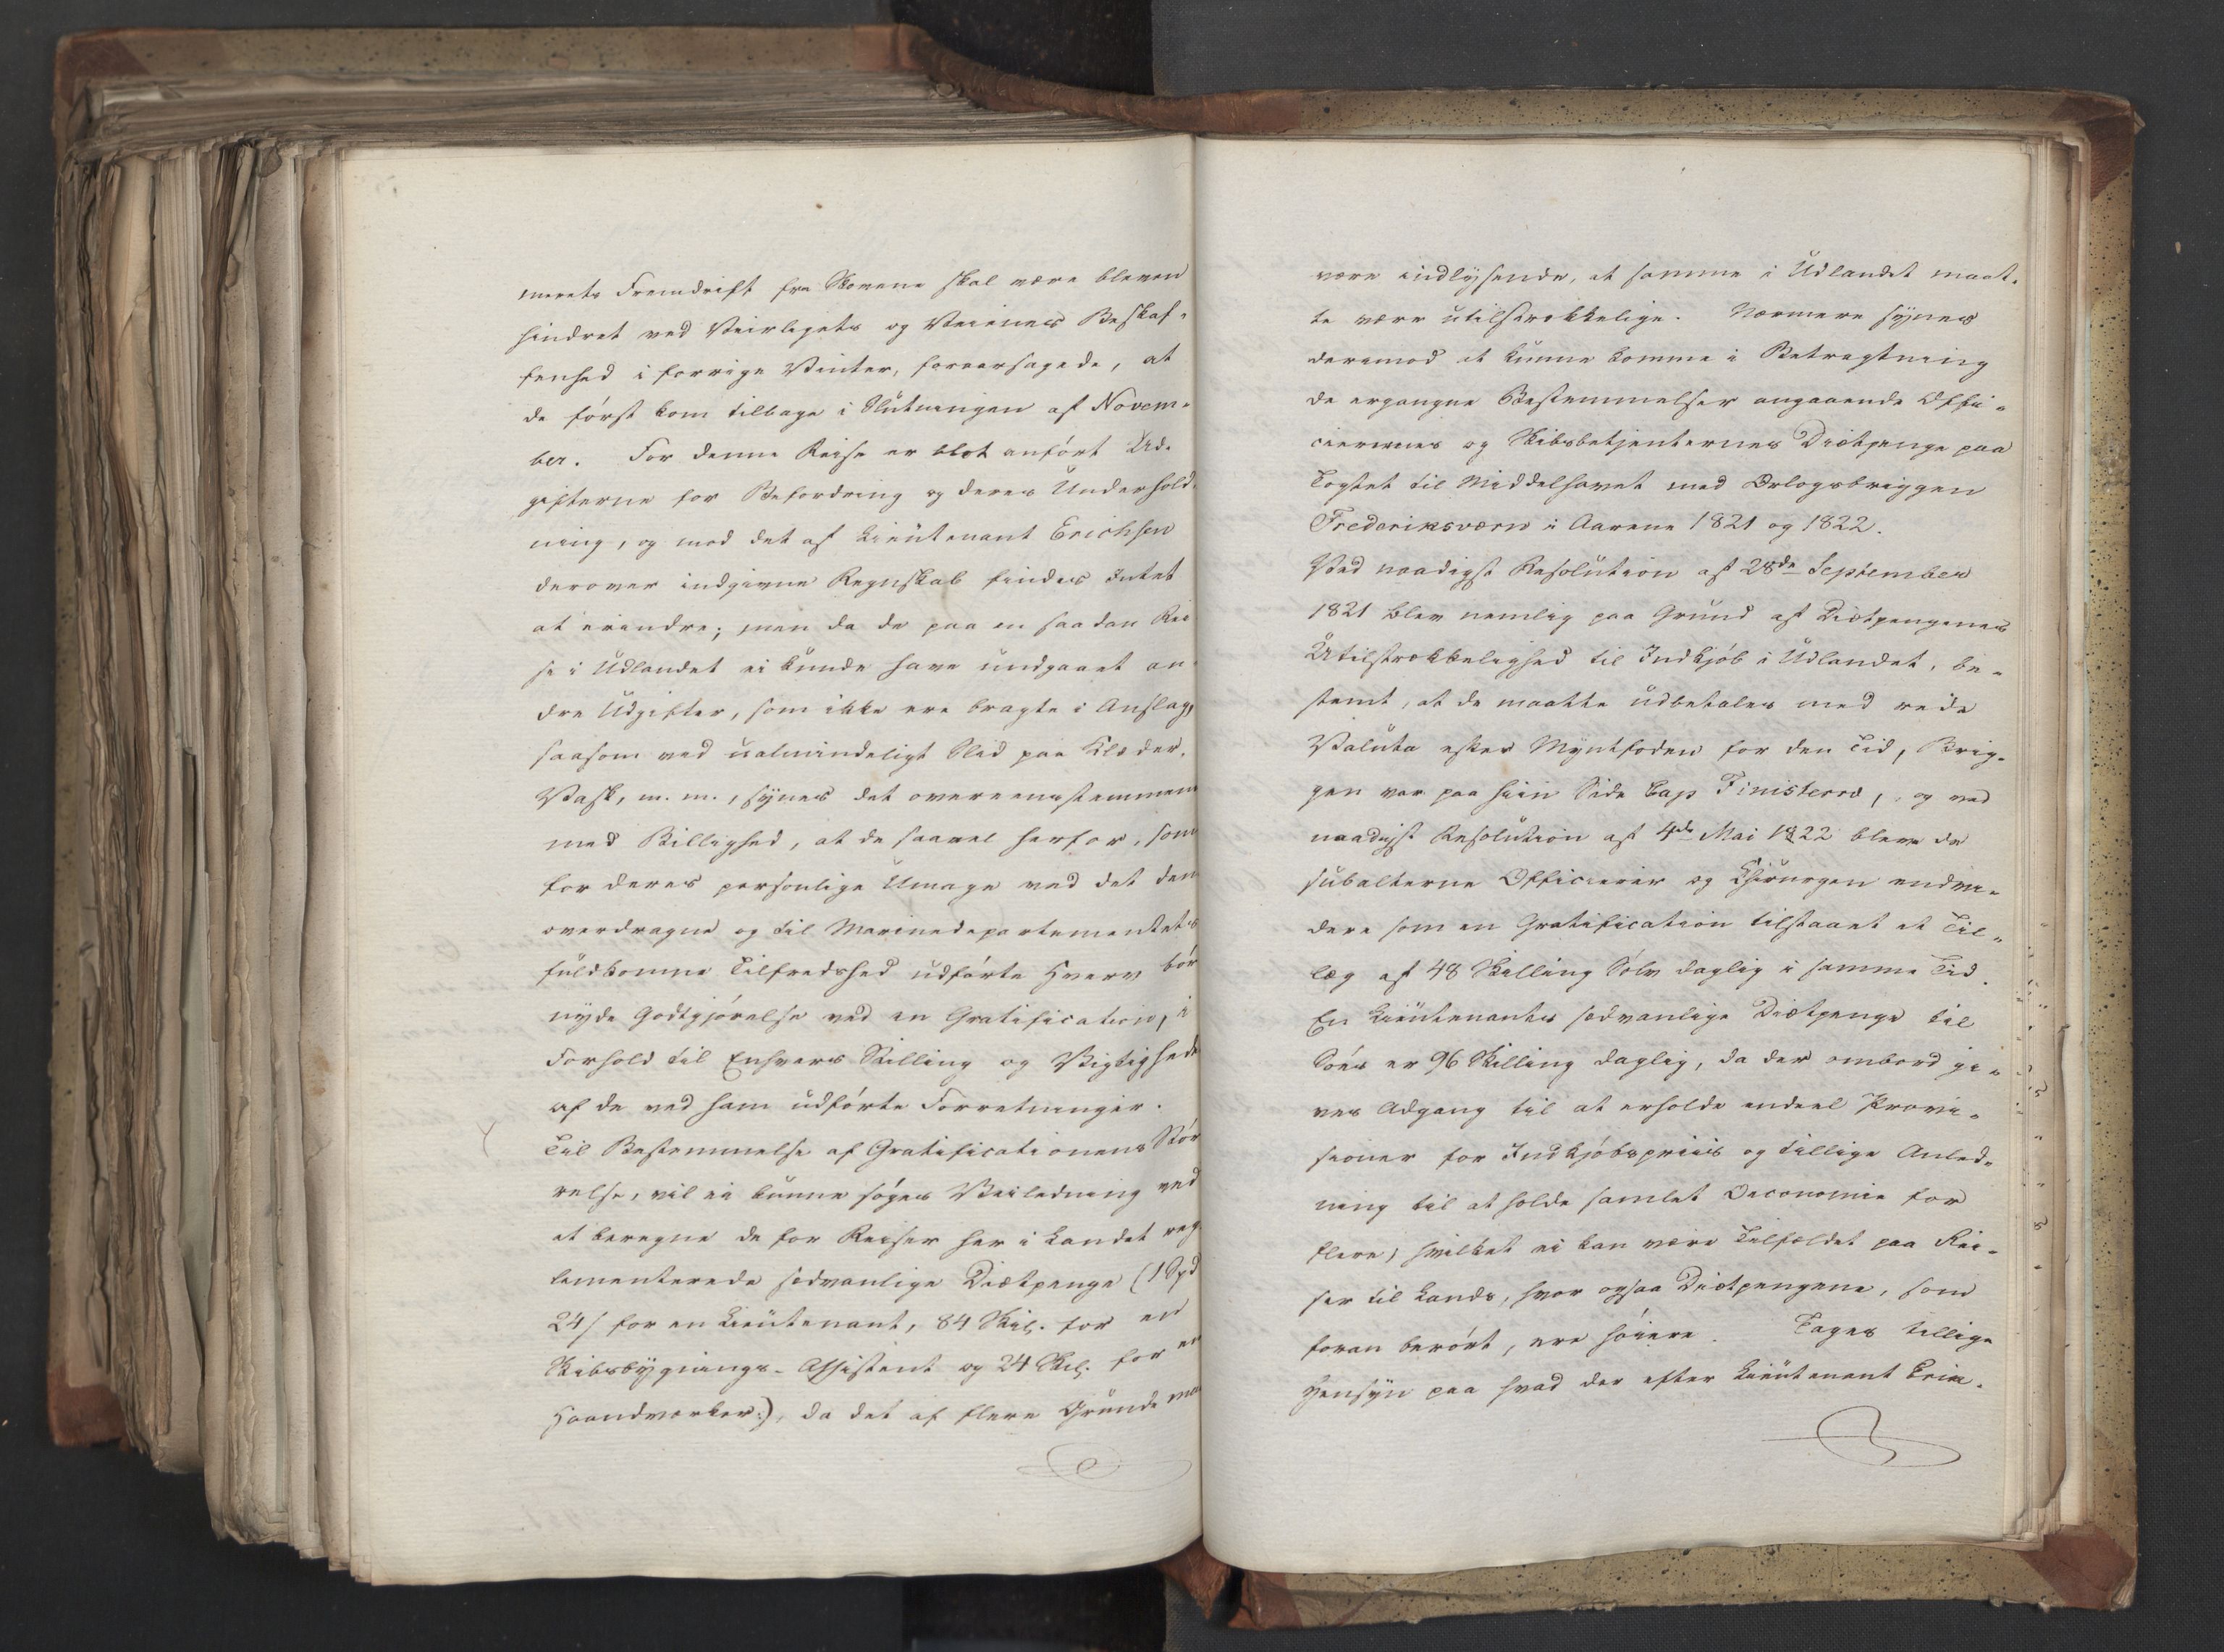 merets Fremdrift fra Skovene skal være bleven
hindret ved Veirligets og Veienes Beskaf-
fenhed i forrige Vinter, foraarsagede, at
de først kom tilbage i Slutningen af Novem-
ber. For denne Reise er blot anført Ud-
gifterne for Befordring og deres Underhold-
ning, og mod det af Lieutenant Erichsen
derover indgivne Regnskab findes Intet
at erindre; men da de paa en saadan Rei
se i Udlandet ei kunde have undgaaet an-
dre Udgifter, som ikke ere bragte i Anslag,
saasom ved ualmindeligt Slid paa Klæder,
Vask, m. m., synes det overeensstemmen
med Billighed, at de saavel herfor, som
for deres personlige Umage ved det dem
overdragne og til Marinedepartementets
fuldkomne Tilfredshed udførte Hverv bør
nyde Godtgjørelse ved en Gratification, i
Forhold til Enhvers Stilling og Vigtighede
af de ved ham udførte Forretninger.
Til Bestemmelse af Gratificationens Stør
relse, vil ei kunne søges Veiledning ved
at beregne de for Reiser her i Landet reg
lementerede sædvanlige Diætpenge (1 Spd
24 s for en Lieutenant, 84 Skil. for en
Skibsbygnings-Assistent og 24 Skil. for en
Haandværker:), da det af flere Grunde maa
være indlysende, at samme i Udlandet maat-
te være utilstrækkelige. Nærmere synes
derimod at kunne komme i Betragtning
de ergangne Bestemmelser angaaende Offi-
cierernes og Skibsbetjenternes Diætpenge paa
Togtet til Middelhavet med Orlogsbriggen
Frederiksværn i Aarene 1821 og 1822.
Ved naadigst Resolution af 28de September
1821 blev nemlig paa Grund af Diætpengenes
Utilstrækkelighed til Indkjøb i Udlandet, be-
stemt, at de maatte udbetales med rede
Valuta efter Myntfoden for den Tid, Brig-
gen var paa hiin Side Cap Finisterre, og ved
naadigst Resolution af 4de Mai 1822 bleve de
subalterne Officierer og Chirurgen endvi-
dere som en Gratification tilstaaet et Til-
læg af 48 Skilling Sølv daglig i samme Tid.
En Lieutenants sædvanlige Diætpenge til
Søes er 96 Skilling daglig, da der ombord gi-
ves Adgang til at erholde endeel Provi-
sioner for Indkjøbspriis og tillige Anled-
ning til at holde samlet Oeconomie for
flere; hvilket ei kan være Tilfældet paa Rei-
ser til Lands, hvor ogsaa Diætpengene, som
foran berørt, ere høiere. Tages tillige
Hensyn paa hvad der efter Lieutenant Erik-